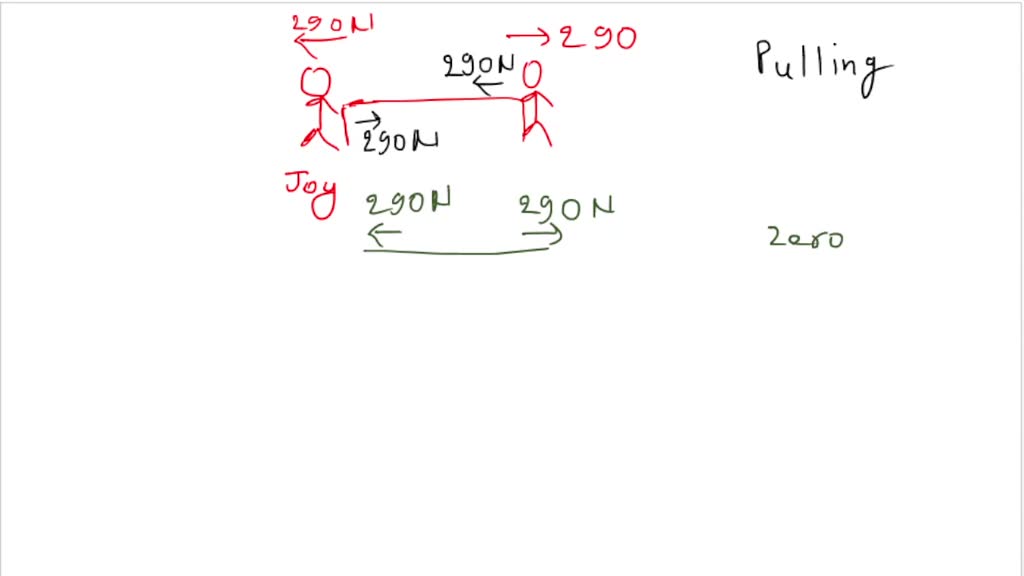 290N
290
290N
Pulling
290N
Joy
290N
290N
Zero